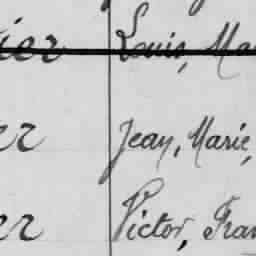 ier Louis, Ma
er Jean, Marie,
er Victor, Fran